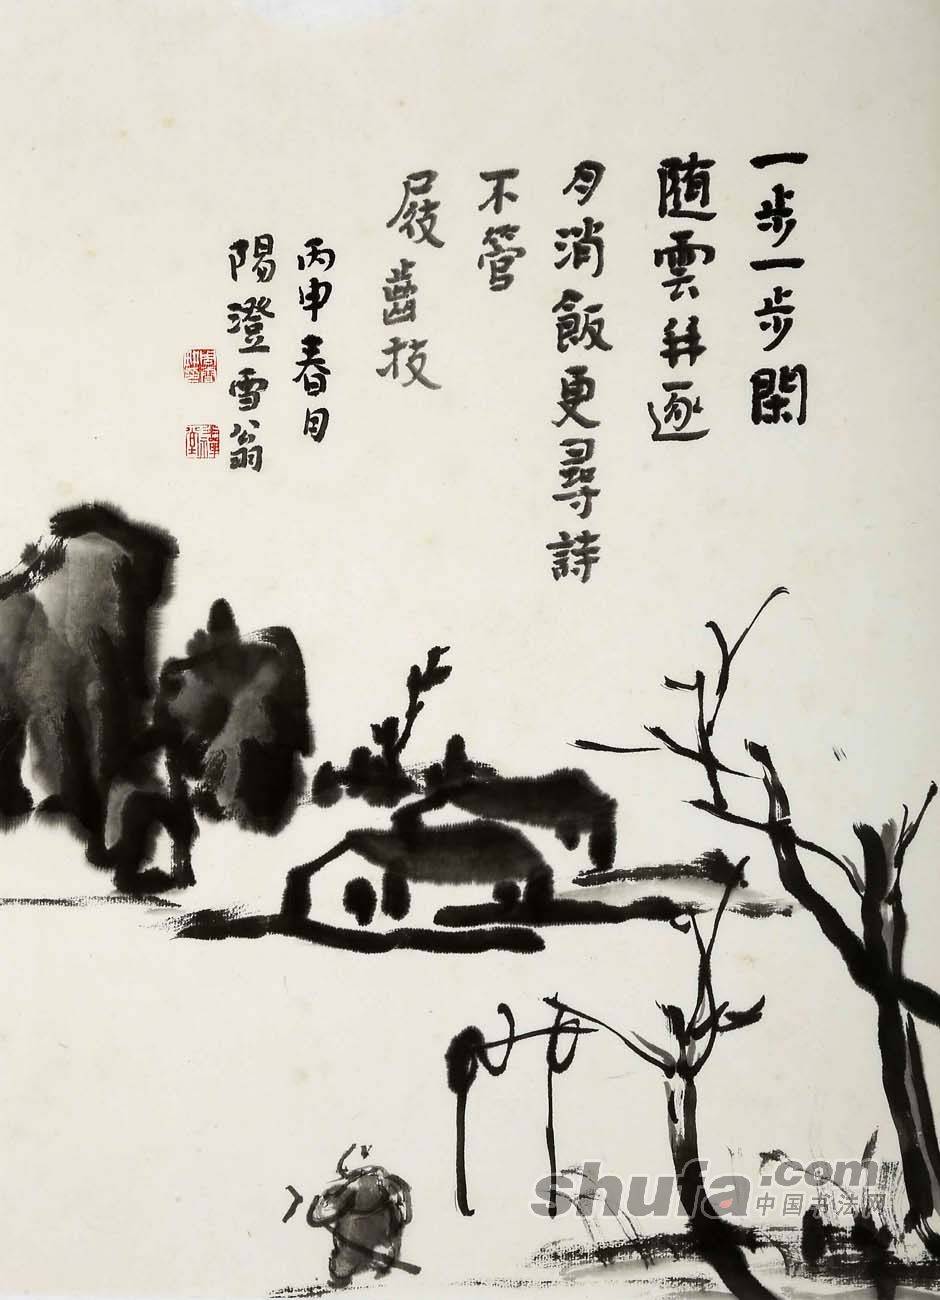 一步一步閑
随雲并逐
月消飯更尋詩
不管
屐齒技
丙申春月
陽澄雪翁
shufa.com
中国书法网